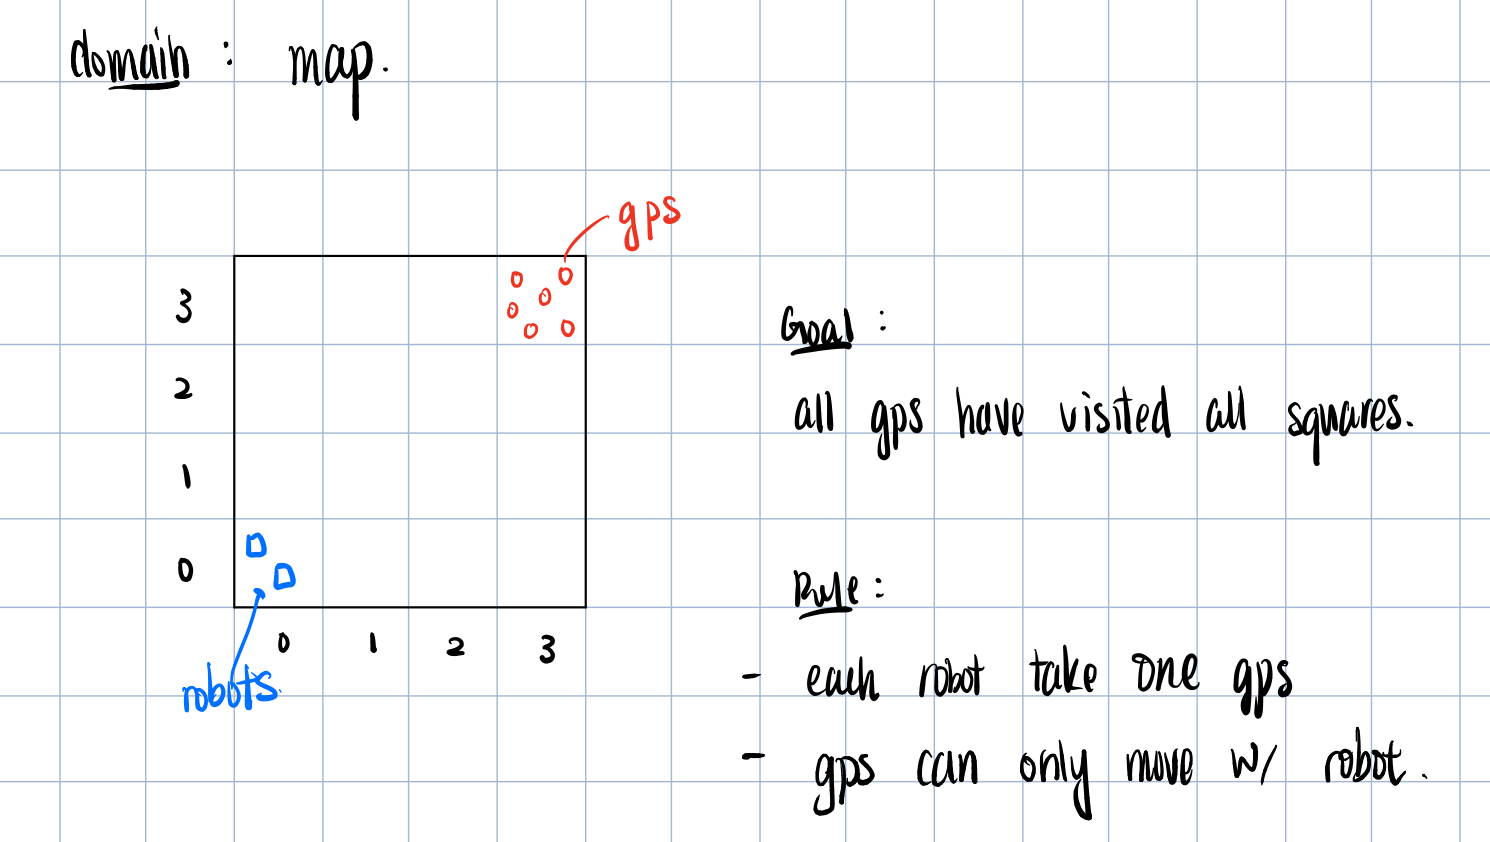 domain : map.
gps
3
2
1
0
0 1 2 3
robots.
Goal :
all gps have visited all squares.
Rule :
- each robot take one gps
- gps can only move w/ robot.